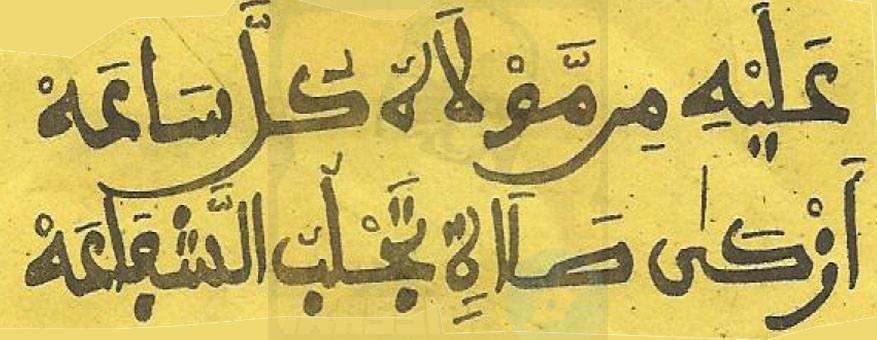 عَلَيْهِ مِن مَّوْلَاهُ كُلَّ سَاعَهْ
أَزْكَى صَلَاةٍ تَجْلُبُ الشَّفَاعَهْ